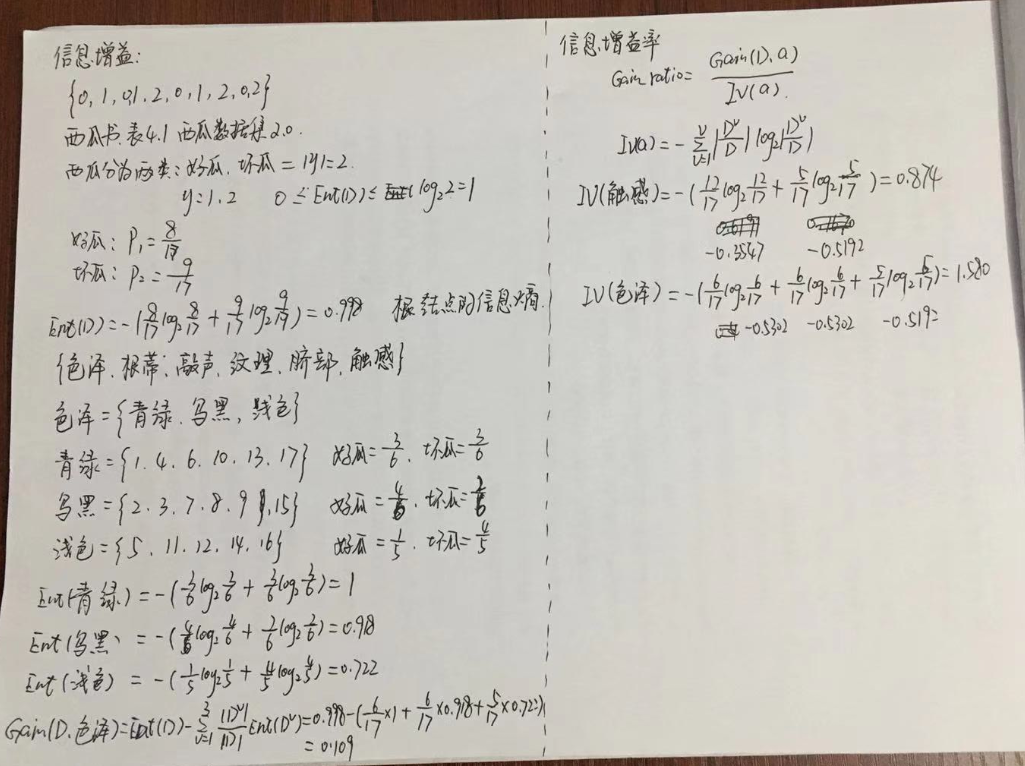 信息增益:
{0,1,0,1,2,0,1,2,0,2}
西瓜书.表4.1 西瓜数据集2.0.
西瓜分为两类:好瓜.坏瓜=|y|=2.
y=1.2 0≤Ent(D)≤log₂2=1
好瓜: P₁=8/17
坏瓜: P₂=9/17
Ent(D)=-(8/17log₂8/17+9/17log₂9/17)=0.998 根结点的信息熵.
{色泽.根蒂.敲声.纹理.脐部.触感}
色泽={青绿.乌黑,浅色}
青绿={1.4.6.10.13.17} 好瓜=3/6.坏瓜=3/6
乌黑={2.3.7.8.9.15} 好瓜=4/6.坏瓜=2/6
浅色={5.11.12.14.16} 好瓜=1/5.坏瓜=4/5
Ent(青绿)=-(3/6log₂3/6+3/6log₂3/6)=1
Ent(乌黑)=-(4/6log₂4/6+2/6log₂2/6)=0.918
Ent(浅色)=-(1/5log₂1/5+4/5log₂4/5)=0.722
Gain(D.色泽)=Ent(D)-∑³ᵥ₌₁|Dᵛ|/|D|Ent(Dᵛ)=0.998-(6/17×1+6/17×0.918+5/17×0.722)
=0.109
信息增益率
Gain ratio=Gain(D.a)/IV(a).
IV(a)=-∑ⱽᵥ₌₁|Dᵛ/D|log₂|Dᵛ/D|
IV(触感)=-(12/17log₂12/17+5/17log₂5/17)=0.874
-0.3547 -0.5192
IV(色泽)=-(6/17log₂6/17+6/17log₂6/17+5/17log₂5/17)=1.580
-0.5302 -0.5302 -0.5192